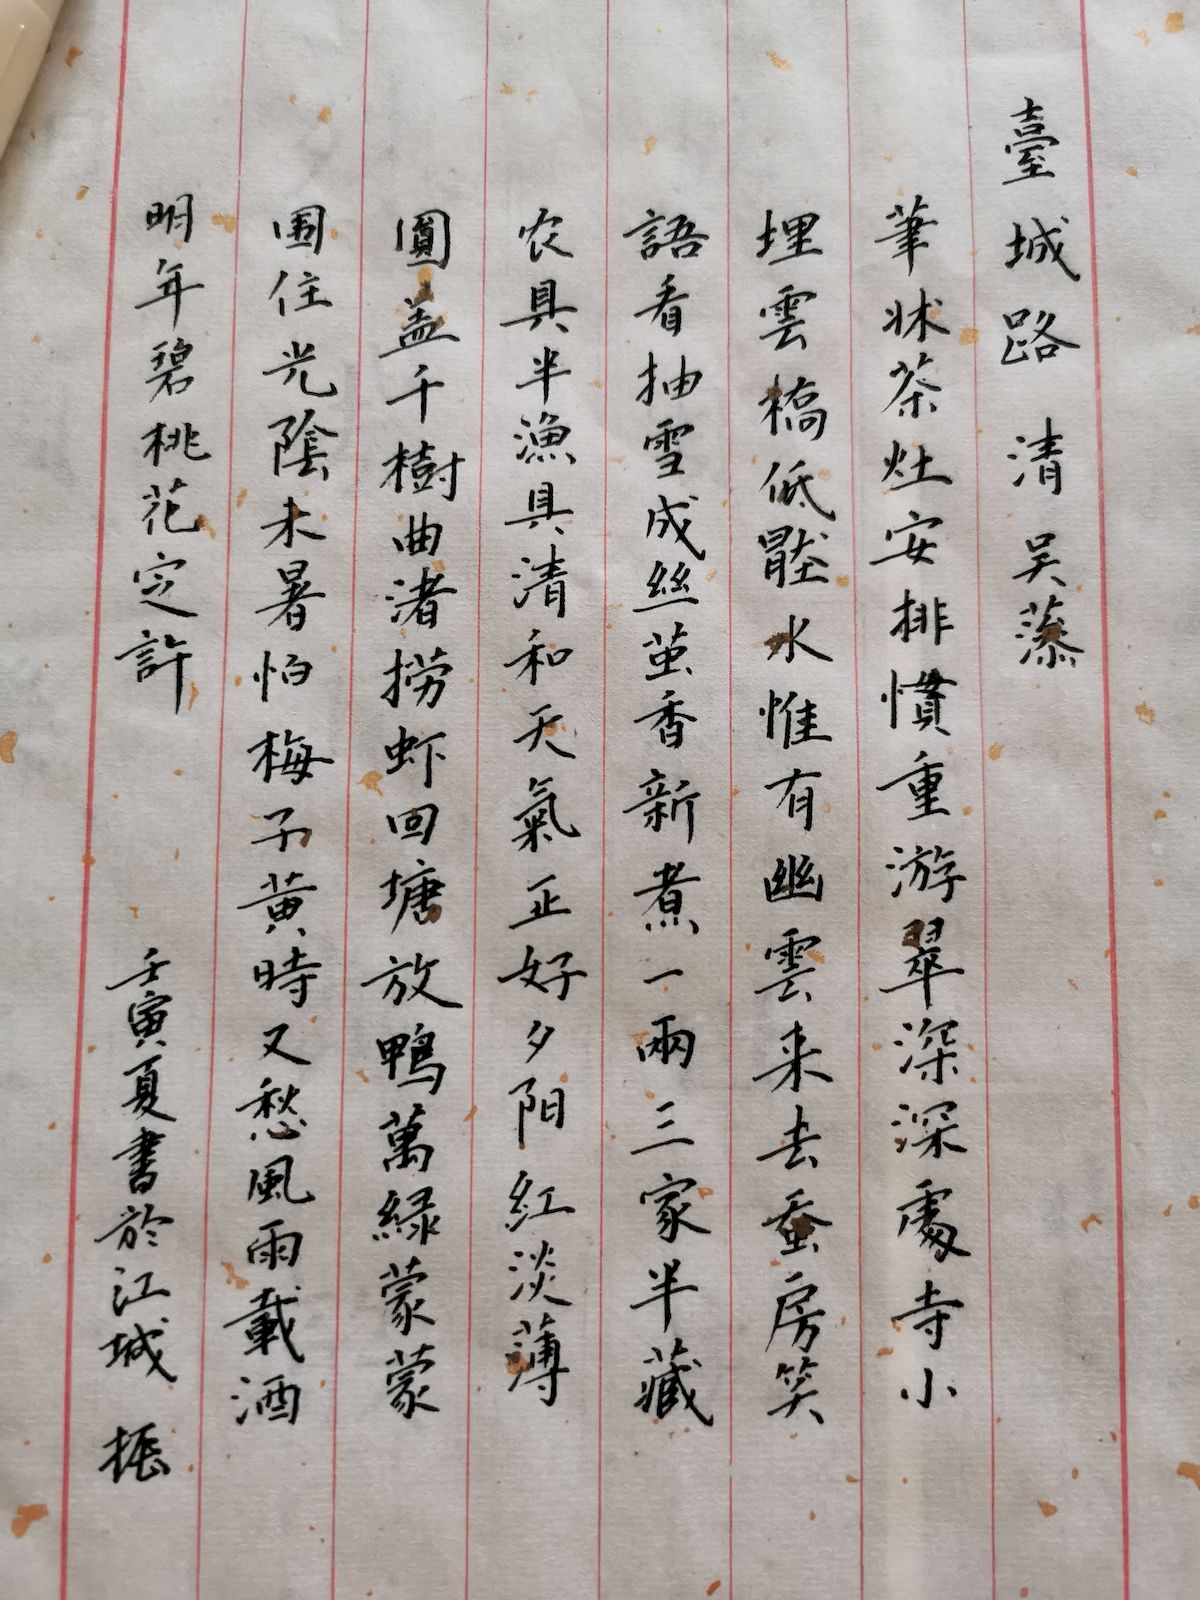 臺城路 清 吴藻
筆牀茶灶安排慣重游翠深深處寺小
埋雲橋低壓水惟有幽雲来去蚕房笑
語看抽雪成絲茧香新煮一兩三家半藏
农具半漁具清和天氣正好夕阳紅淡薄
圓盖千樹曲渚捞虾回塘放鴨萬緑蒙蒙
围住光陰未暑怕梅子黄時又愁風雨載酒
明年碧桃花定許 壬寅夏書於江城 振